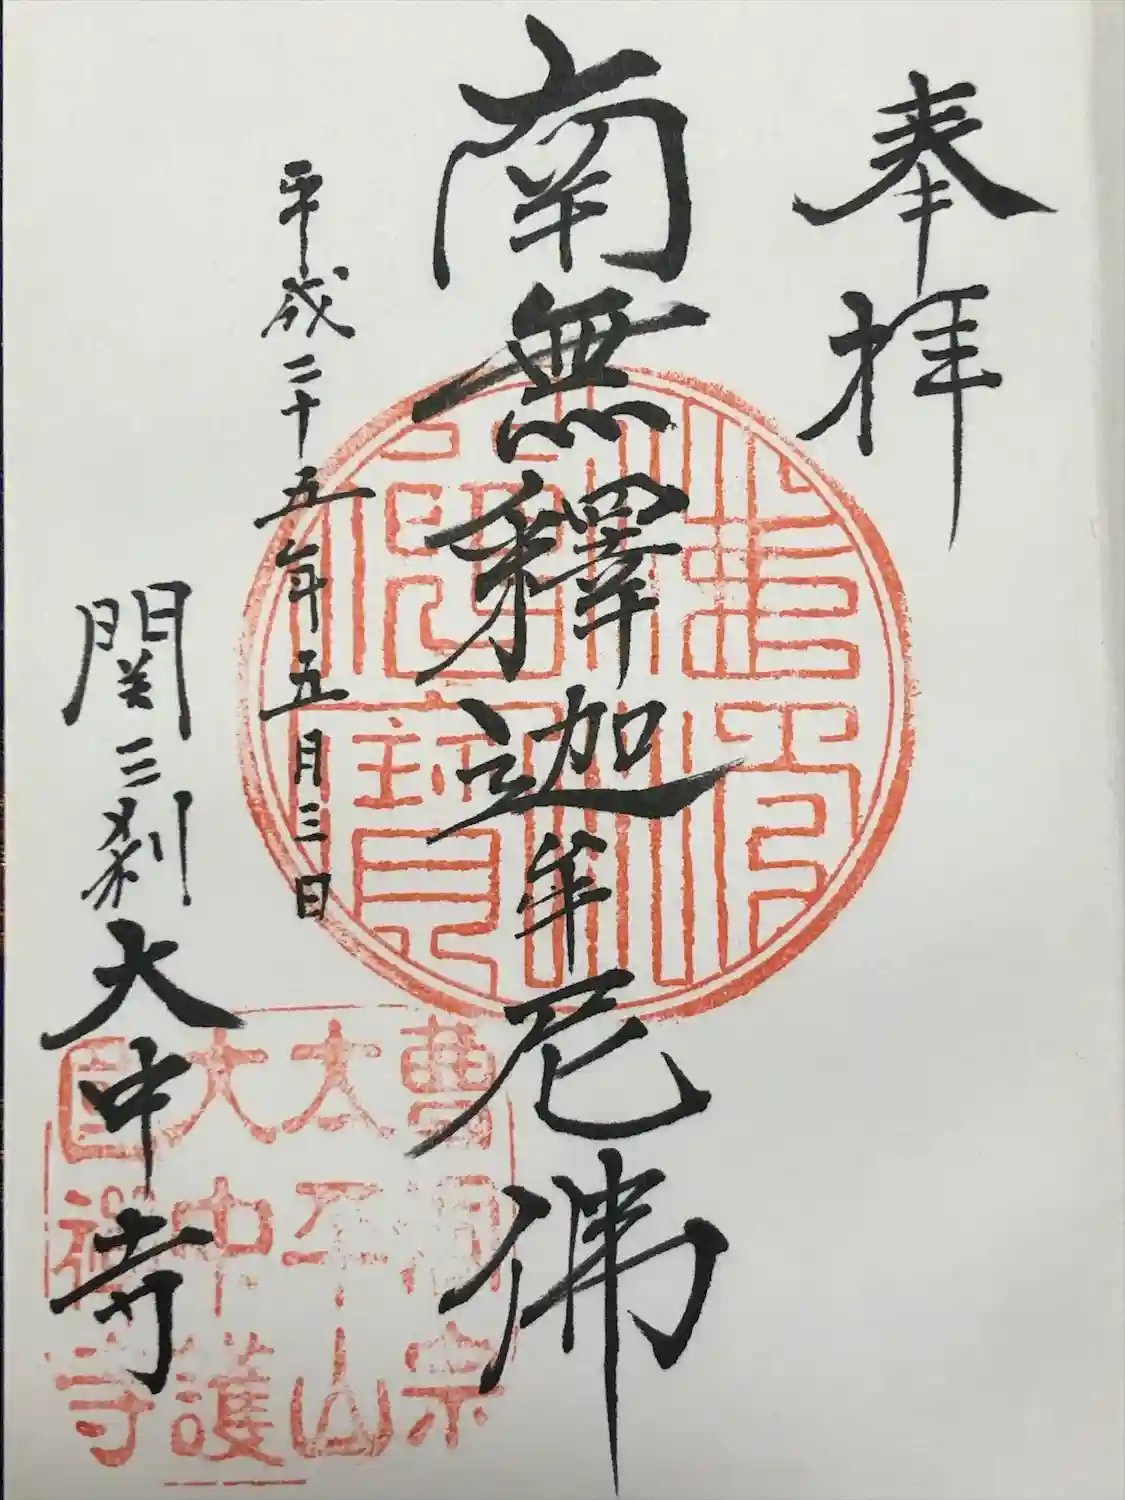 奉拝
南無釋迦牟尼佛
平成二十五年五月三日
関三刹大中寺
佛法僧寳
曹洞宗
太平山
大中護
国禅寺